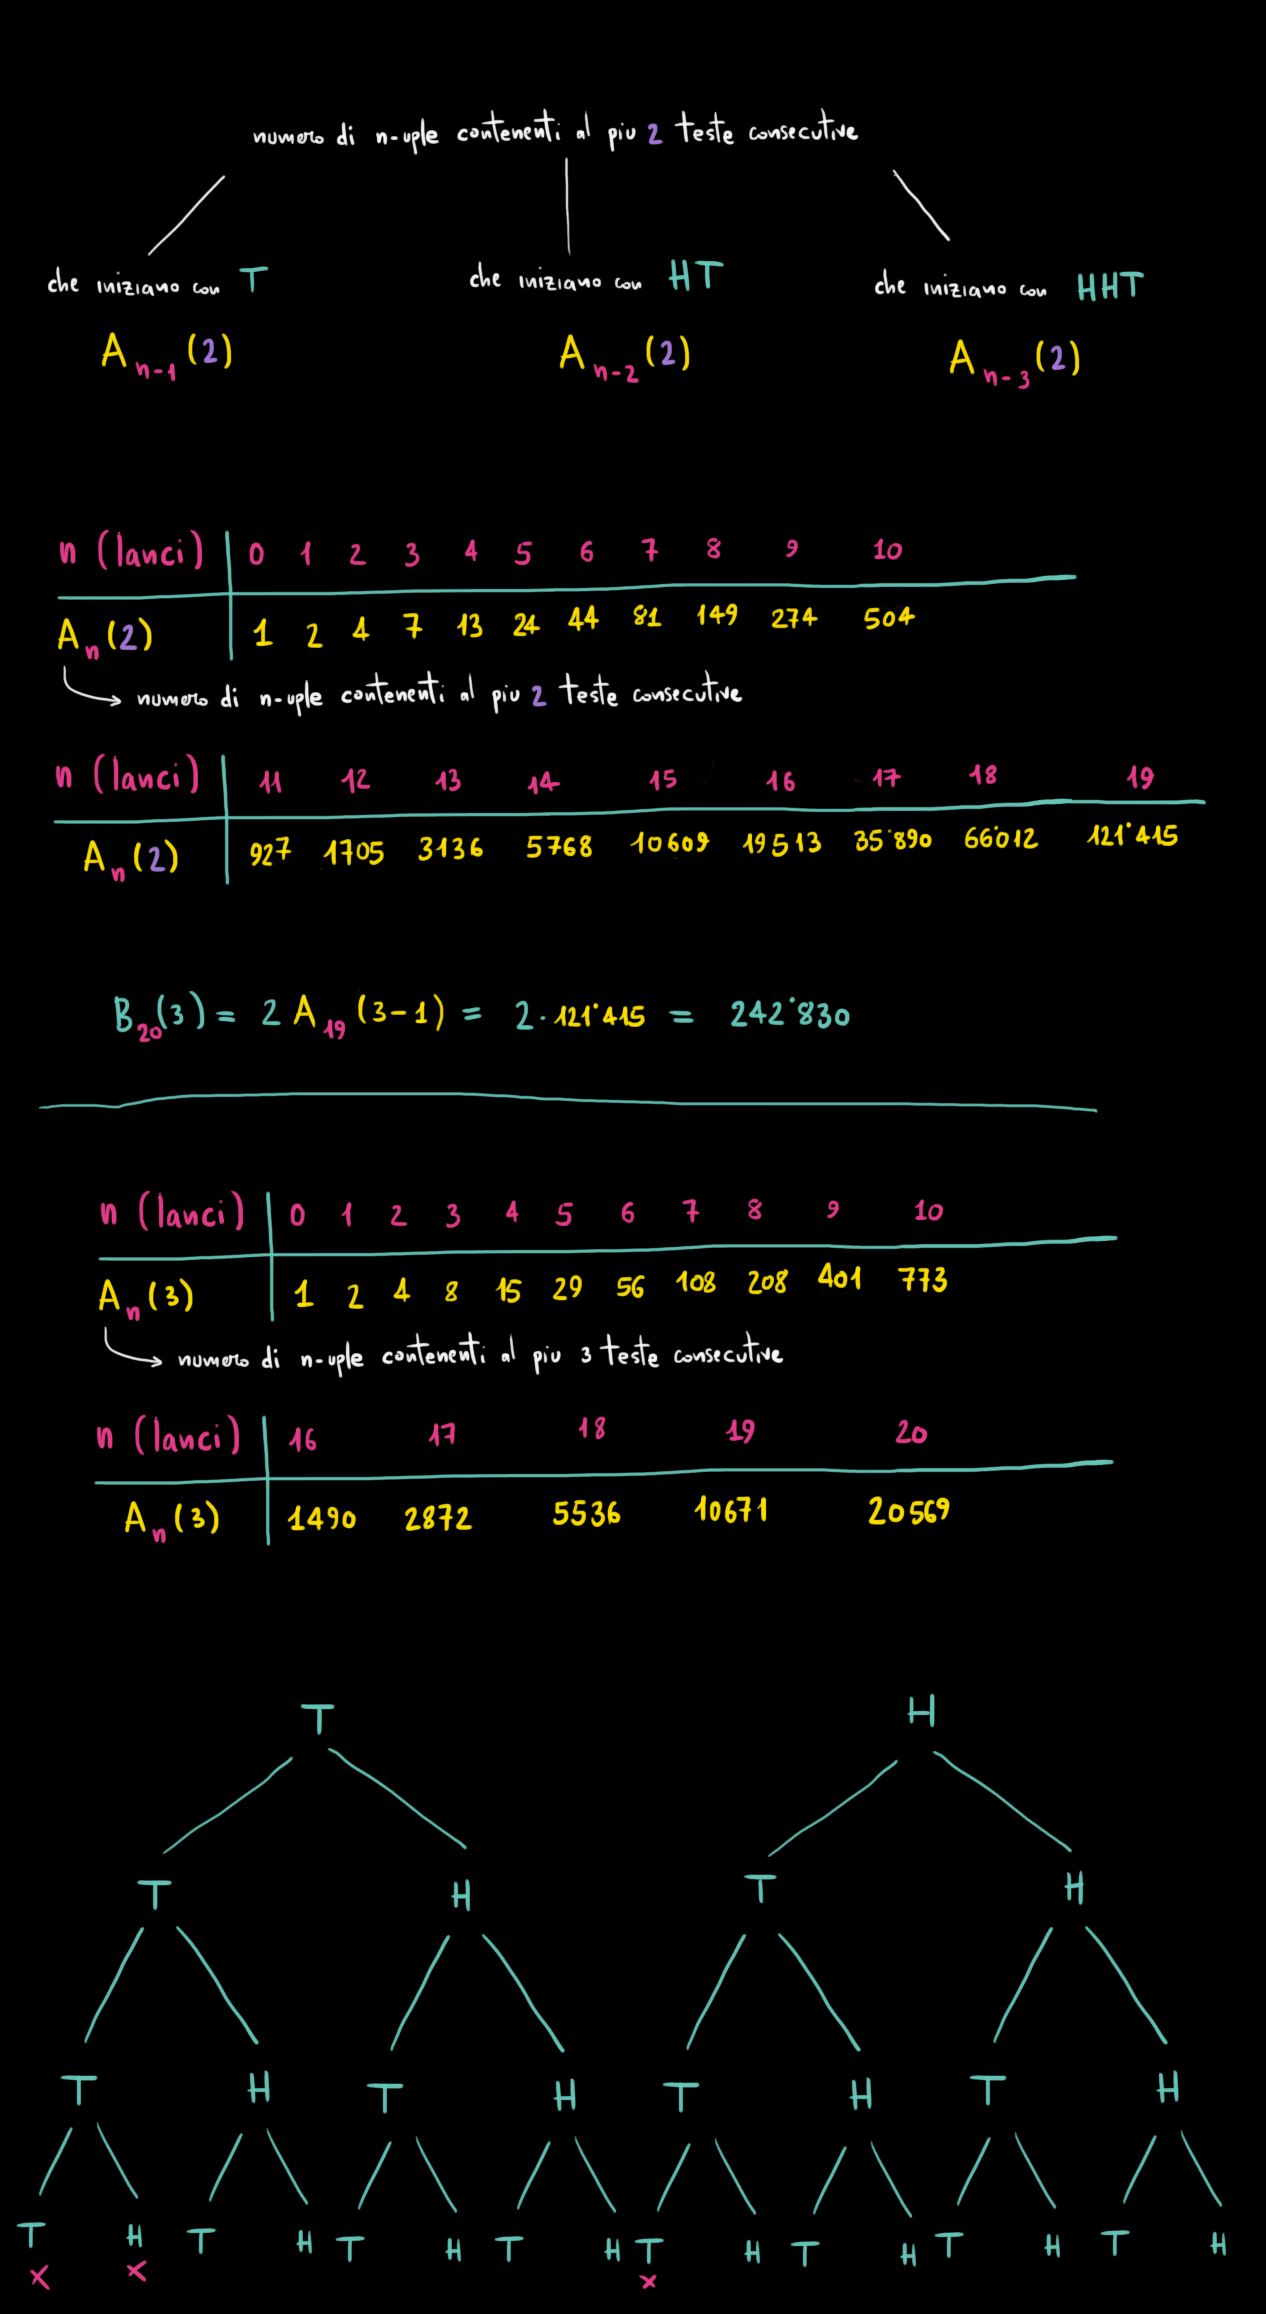 numero di n-uple contenenti al piu 2 teste consecutive
che iniziano con T
che iniziano con HT
che iniziano con HHT
A n-1 (2)
A n-2 (2)
A n-3 (2)
n (lanci) 0 1 2 3 4 5 6 7 8 9 10
A n (2) 1 2 4 7 13 24 44 81 149 274 504
numero di n-uple contenenti al piu 2 teste consecutive
n (lanci) 11 12 13 14 15 16 17 18 19
A n (2) 927 1705 3136 5768 10609 19513 35˙890 66˙012 121˙415
B 20 (3) = 2 A 19 (3-1) = 2 · 121˙415 = 242˙830
n (lanci) 0 1 2 3 4 5 6 7 8 9 10
A n (3) 1 2 4 8 15 29 56 108 208 401 773
numero di n-uple contenenti al piu 3 teste consecutive
n (lanci) 16 17 18 19 20
A n (3) 1490 2872 5536 10671 20569
T H
T H T H
T H T H T H T H
T H T H T H T H T H T H T H T H
x x x